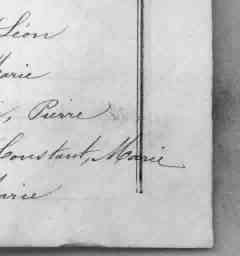 Léon
Marie
, Pierre
Constant, Marie
Marie